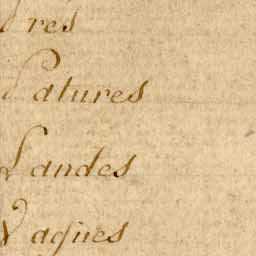 Prés
Patures
Landes
Vagues